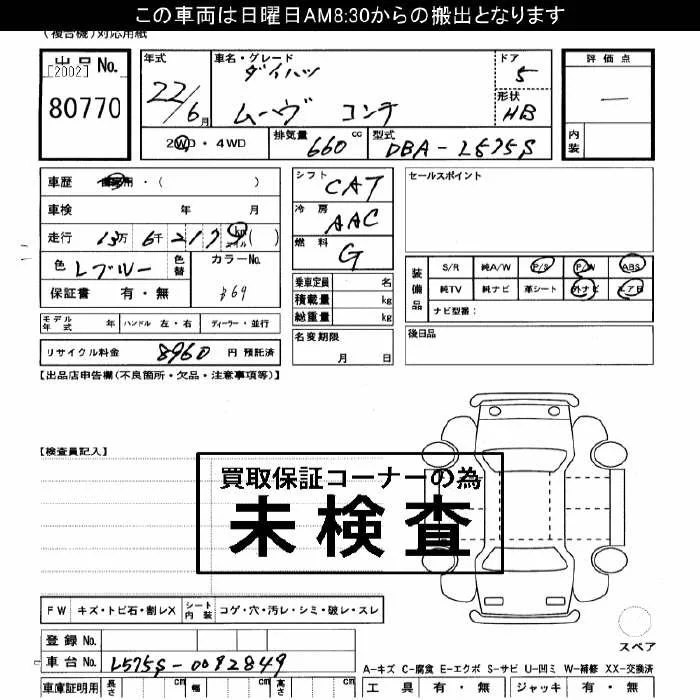 この車両は日曜日AM8:30からの搬出となります
(複合機)対応用紙
出品No.
[2002]
80770
年式
22/6月
車名・グレード
ダイハツ
ムーヴ コンテ
ドア
5
形状
HB
評価点
—
内装
2WD・4WD
排気量 660 cc
型式 DBA-L575S
車歴 ・( )
車検 年 月
走行 13万 6千 217 km マイル ( )
色 Lブルー
色替
カラーNo.
保証書 有・無
シフト CAT
冷房 AAC
燃料 G
乗車定員 名
積載量 kg
総重量 kg
名変期限
月 日
セールスポイント
装備品
S/R 純A/W P/S P/W ABS
純TV 純ナビ 革シート 外ナビ エアB
ナビ型番:
後日品
モデル年式 年 ハンドル 左・右 ディーラー・並行
リサイクル料金 8960 円 預託済
【出品店申告欄(不良箇所・欠品・注意事項等)】
【検査員記入】
買取保証コーナーの為
未検査
FW キズ・トビ石・割レX
シート内装 コゲ・穴・汚レ・シミ・破レ・スレ
スペア
登録No.
車台No. L575S-0082849
A-キズ C-腐食 E-エクボ S-サビ U-凹ミ W-補修 XX-交換済
車庫証明用 長さ cm 幅 cm 高さ cm
工具 有・無 ジャッキ 有・無